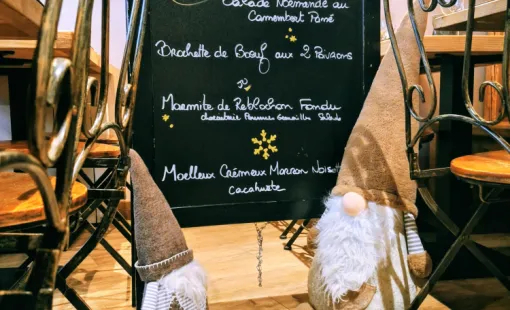 Salade Normande au
Camembert Pané
Brochette de Bœuf aux 2 Poivrons
ou
Marmite de Reblochon Fondu
charcuterie Pommes Grenailles Salade
Moelleux Crémeux Marron Noisette
Cacahuète